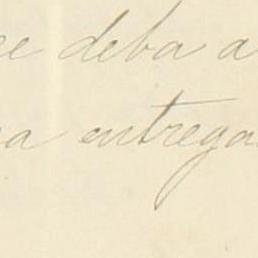 ee deba a
a entrega